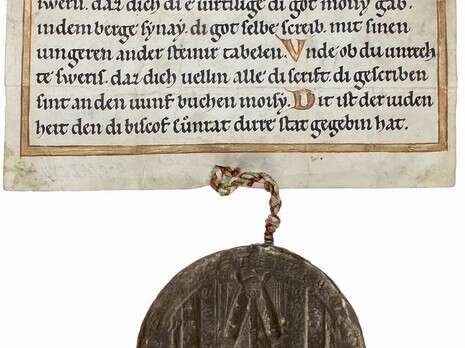 sweris. daz dich di e virtilige di got moisy gab.
indem berge synay. di got selbe screib. mit sinen
uingeren ander steinir tabelen. Vnde ob du unrech
te sweris. daz dich uellin alle di scrift di gescriben
sint an den uunf buchen moisy. Dit ist der iuden
heit den di biscof cůnrat dirre stat gegebin hat.